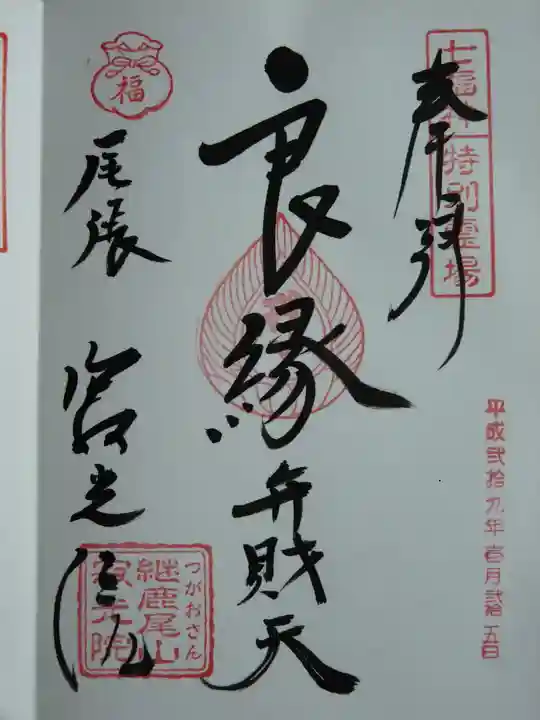 奉拝
七福神 特別霊場
平成弐拾九年壱月弐拾五日
良縁
弁財天
福
尾張
寂光院
つがおさん
継鹿尾山
寂光院